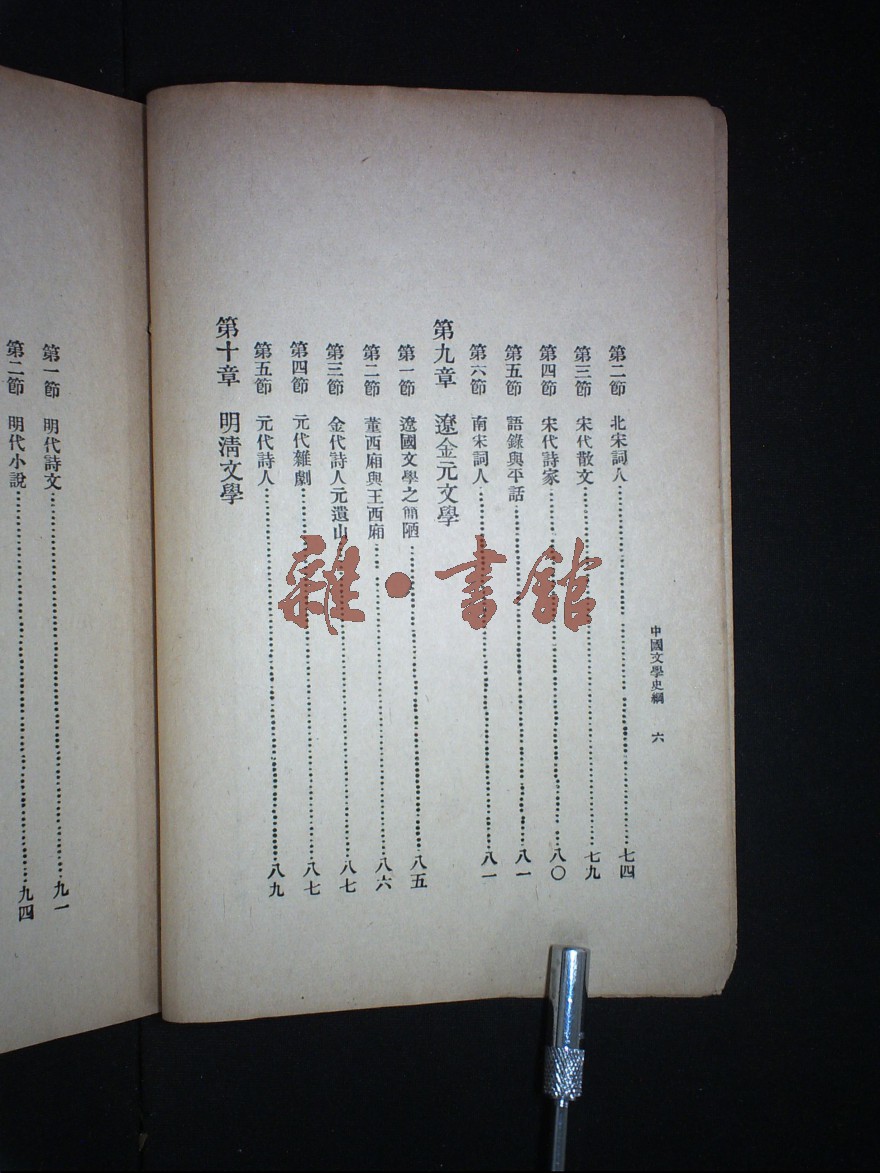 中國文學史綱 六
第二節 北宋詞人 七四
第三節 宋代散文 七九
第四節 宋代詩家 八〇
第五節 語錄與平話 八一
第六節 南宋詞人 八一
第九章 遼金元文學
第一節 遼國文學之簡陋 八五
第二節 董西廂與王西廂 八六
第三節 金代詩人元遺山 八七
第四節 元代雜劇 八七
第五節 元代詩人 八九
第十章 明清文學
第一節 明代詩文 九一
第二節 明代小說 九四
雜·書館